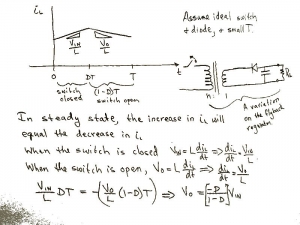 iL
Assume ideal switch
+ diode, + small T.
VIN/L
VO/L
0 DT T t
switch closed
(1-D)T switch open
n : 1
RL
A variation
on the flyback
regulator
In steady state, the increase in iL will
equal the decrease in iL
When the switch is closed VIN = L diL/dt ⇒ diL/dt = VIN/L
When the switch is open, VO = L diL/dt ⇒ diL/dt = VO/L
VIN/L DT = -(VO/L (1-D)T) ⇒ VO = [-D/1-D] VIN